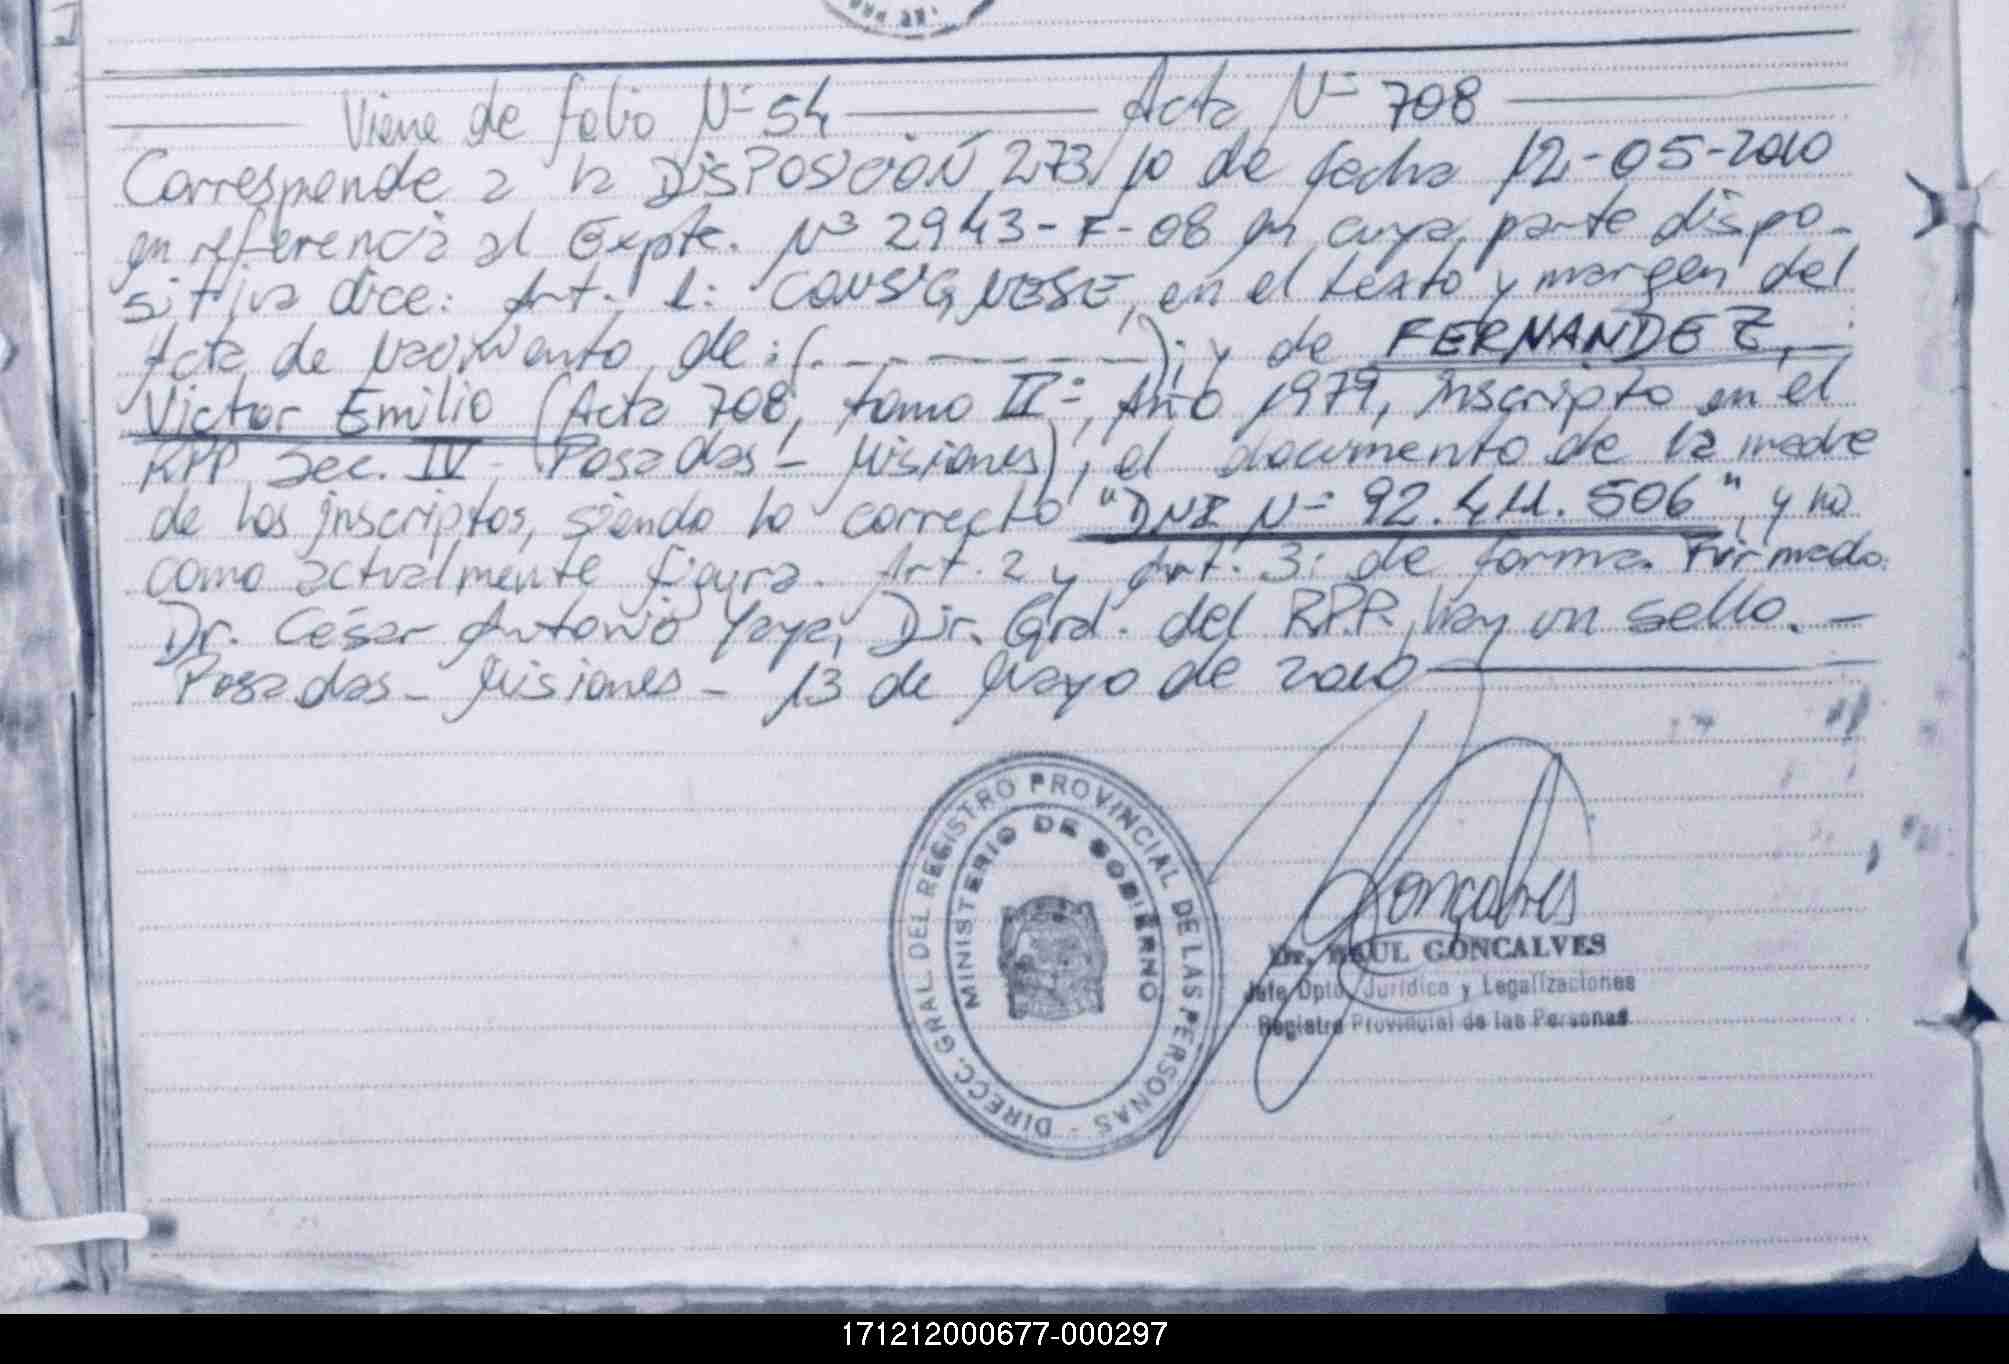 Viene de folio Nº 54 ——— Acta Nº 708 ———
Corresponde a la DISPOSICIÓN 273/10 de fecha 12-05-2010
en referencia al Expte. Nº 2943-F-08 en cuya parte dispo-
sitiva dice: Art. 1: CONSIGNESE, en el texto y margen del
Acta de nacimiento de: (- - - - - - - -); y de FERNANDEZ,
Victor Emilio (Acta 708, tomo IIº, Año 1979, inscripto en el
RPP Sec. IV - Posadas - Misiones), el documento de la madre
de los inscriptos, siendo lo correcto "DNI Nº 92.411.506", y no
como actualmente figura. Art. 2 y Art. 3: de forma. Firmado.
Dr. César Antonio Yaya, Dir. Gral. del R.P.P. hay un sello. —
Posadas - Misiones - 13 de Mayo de 2010 ———
DIRECC. GRAL. DEL REGISTRO PROVINCIAL DE LAS PERSONAS -
MINISTERIO DE GOBIERNO
Goncalves
Dr. RAUL GONCALVES
Jefe Dpto. Jurídico y Legalizaciones
Registro Provincial de las Personas
171212000677-000297